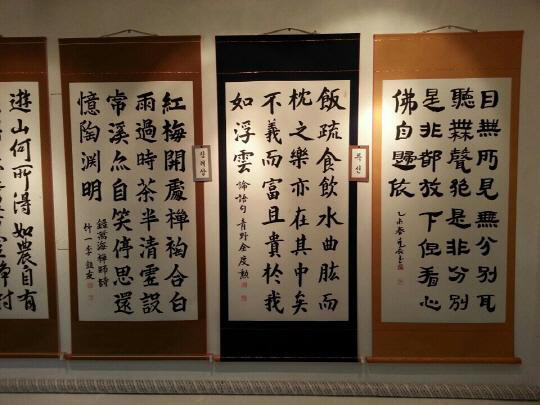 目無所見無分別耳
聽無聲絶是非分別
是非都放下但看心
佛自歸依
乙未春
특선
飯疏食飮水曲肱而
枕之樂亦在其中矣
不義而富且貴於我
如浮雲 論語句 青野金度勳
장려상
紅梅開處禪初合白
雨過時茶半清虛設
虎溪亦自笑停思還
憶陶淵明
錄萬海禪師詩
竹一李
遊山何所得 如農自有